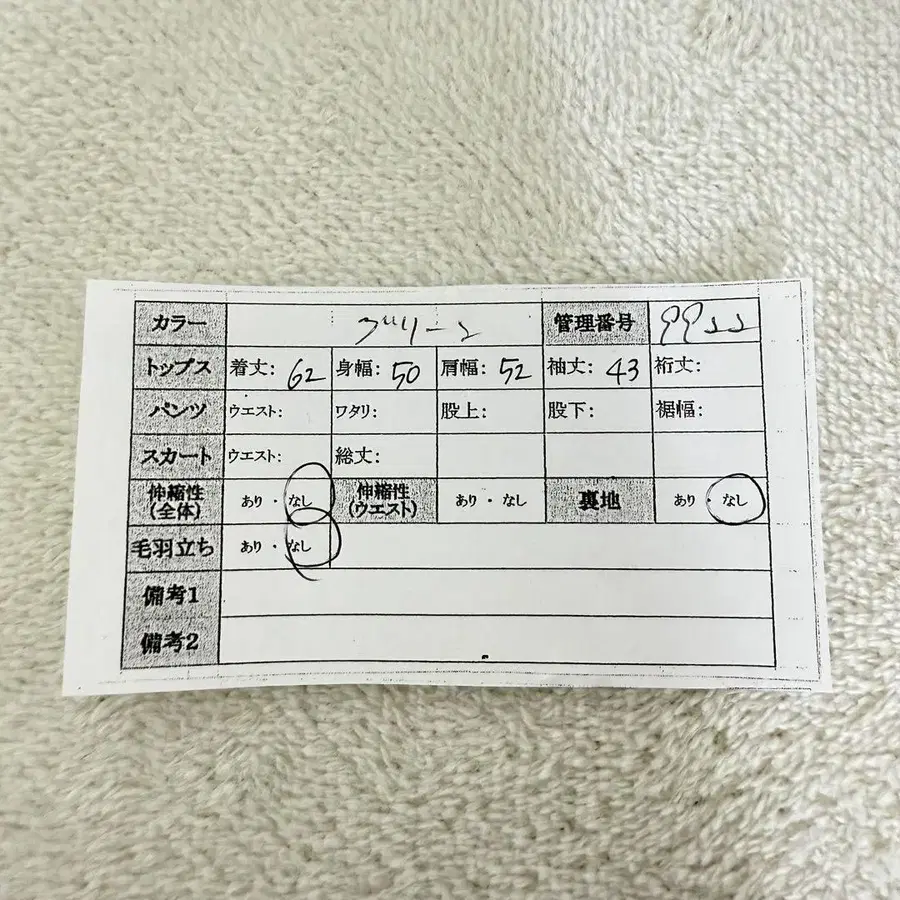 カラー グリーン 管理番号
トップス 着丈: 62 身幅: 50 肩幅: 52 袖丈: 43 裄丈:
パンツ ウエスト: ワタリ: 股上: 股下: 裾幅:
スカート ウエスト: 総丈:
伸縮性 あり・なし 伸縮性 あり・なし 裏地 あり・なし
(全体) (ウエスト)
毛羽立ち あり・なし
備考1
備考2